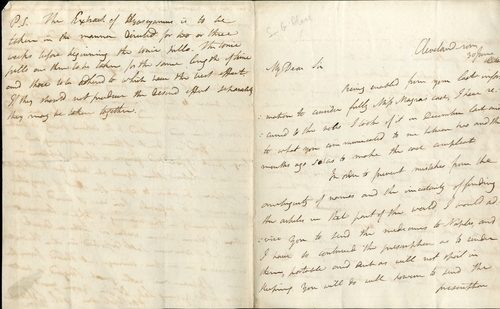 P.S. The Extract of Hyoscyamus is to be
taken in the manner directed for two or three
weeks before beginning the tonic pills. The tonic
pills are then to be taken for the same length of time
and those to be adhered to which have the best effect.
If they should not produce the desired effect separately
they may be taken together.
Cleveland row
30 June
My Dear Sir
Being enabled from your last infor
mation to consider fully Miss case, I have re
to the notes I took of it in December last and
to what you communicated to me between two and three
months ago so as to make the case compleat.
In order to prevent mistakes from the
ambiguity of names and the uncertainty of finding
the articles in that part of the world I would ad
vice you to send the medicines to Naples and
I have so contrived the prescriptions as to render
them portable and such as will not spoil in
keeping You will do well however to send the
prescription